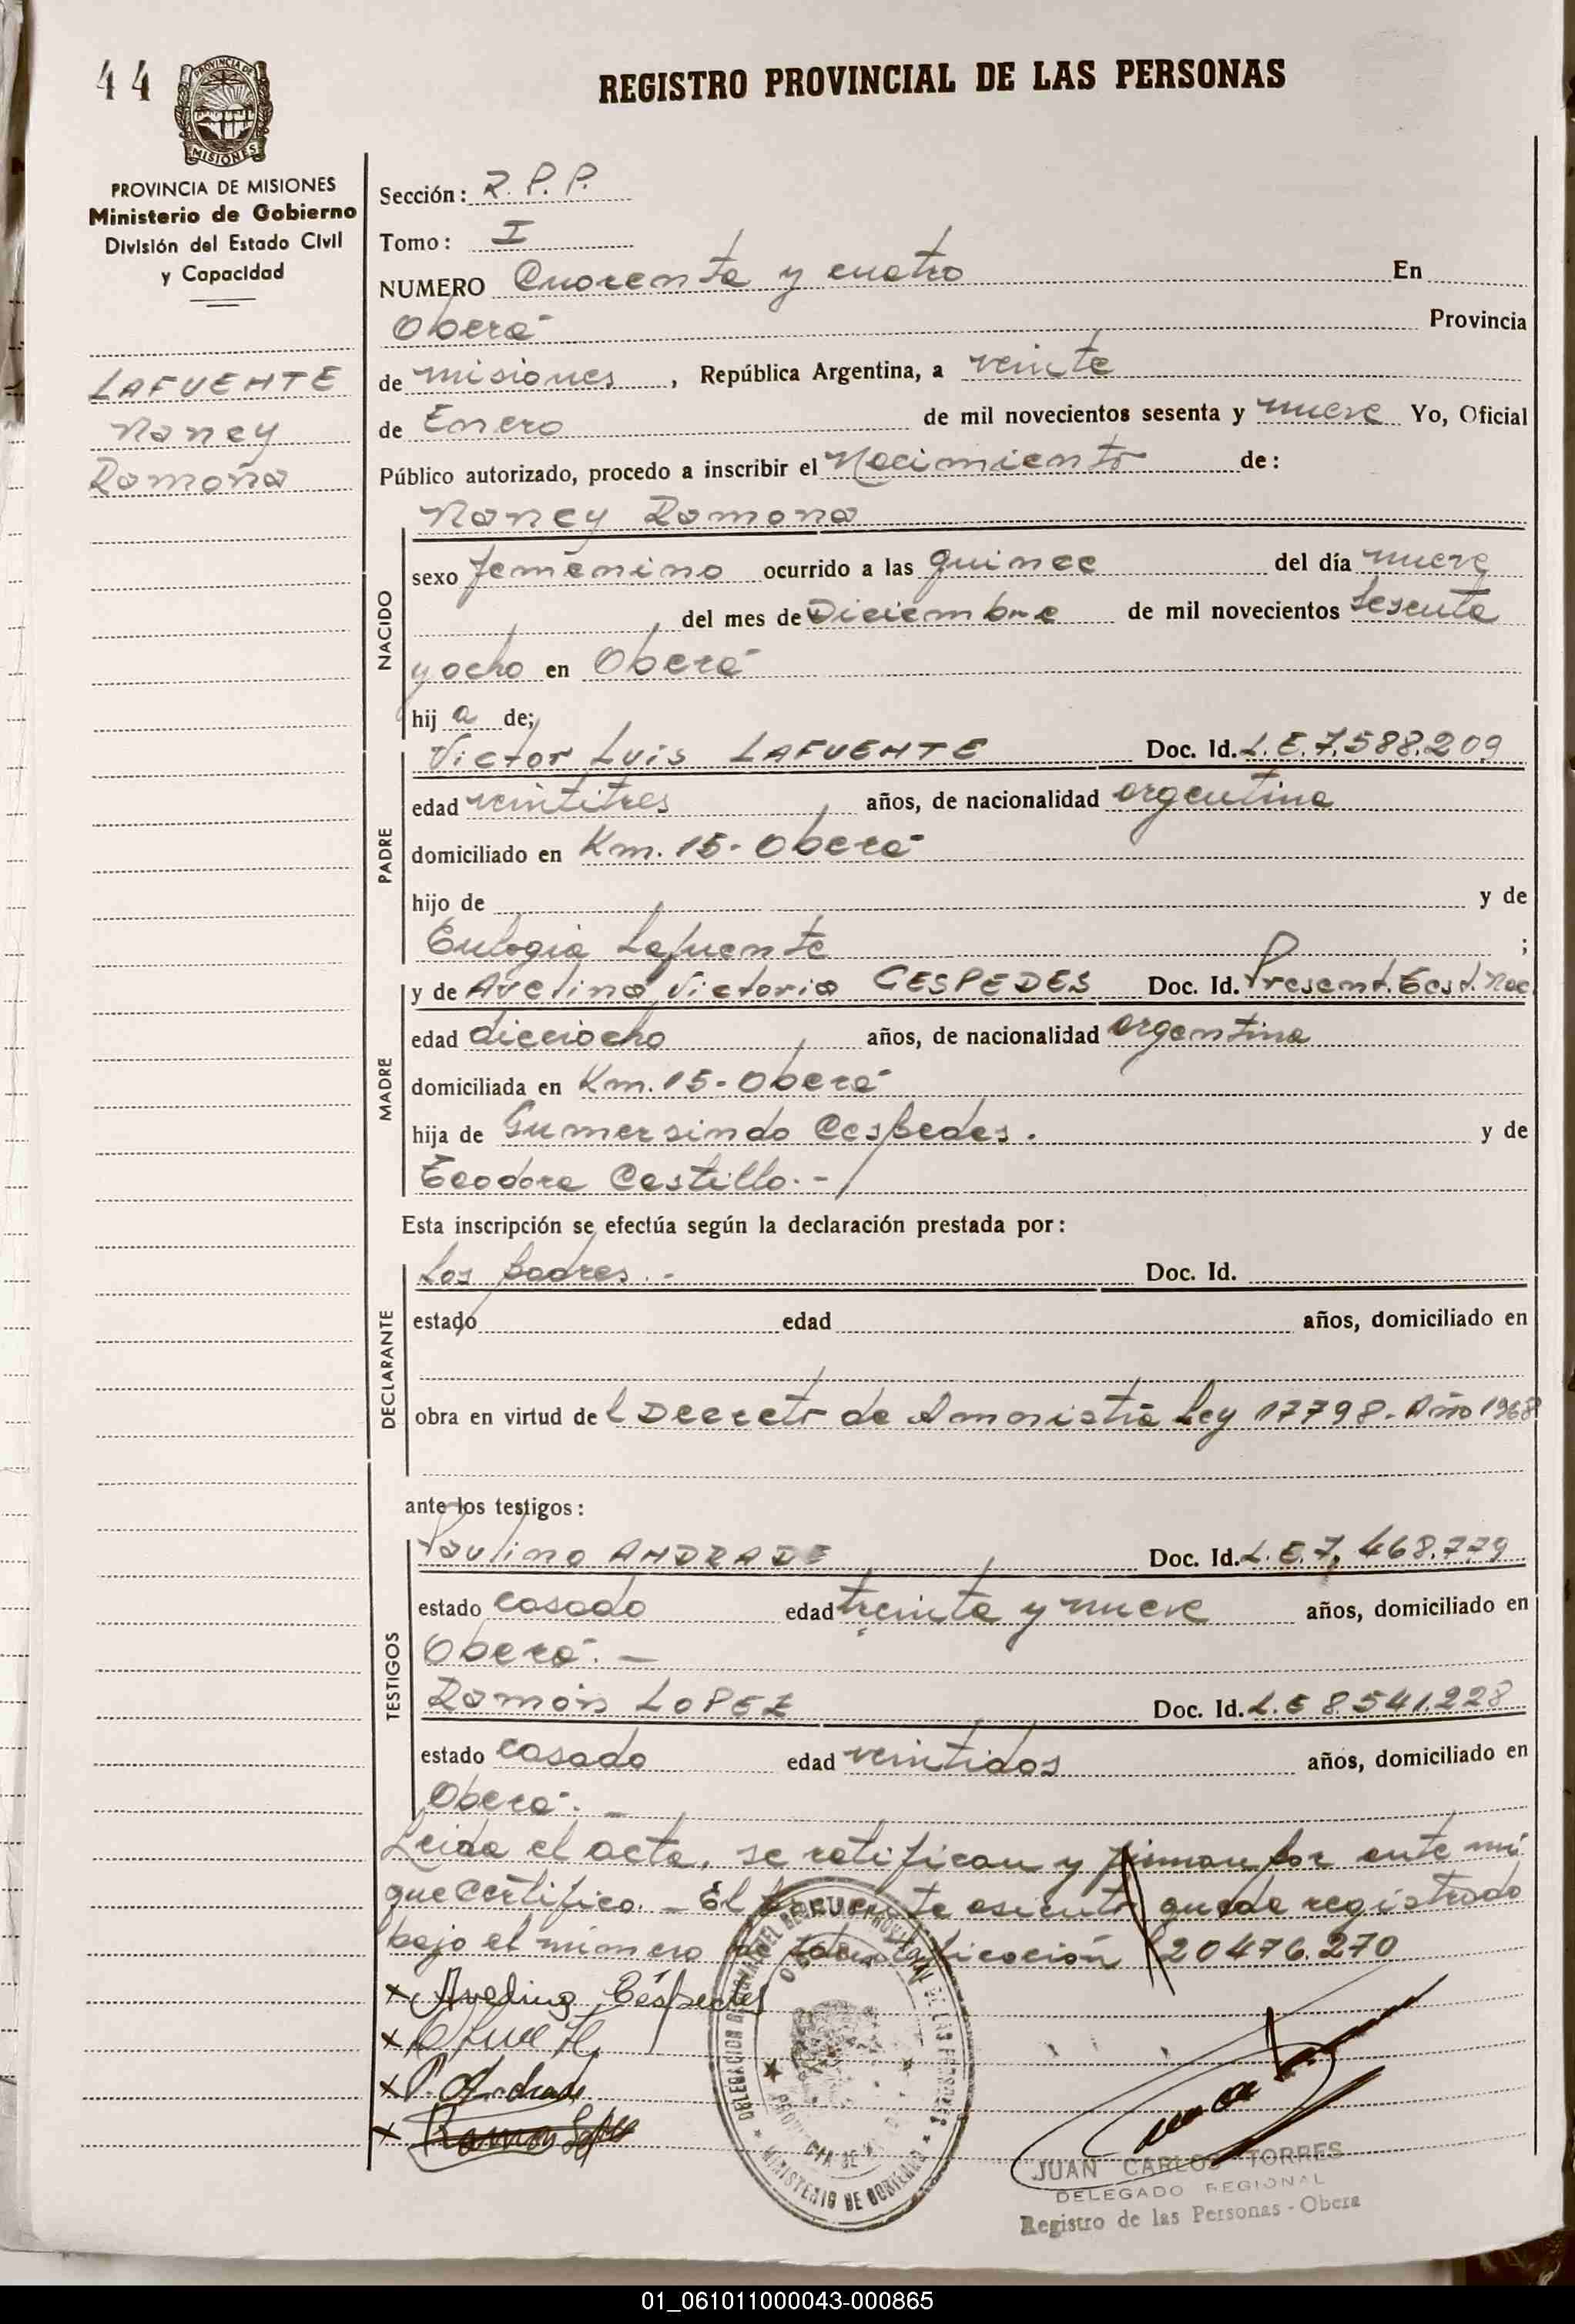 44
PROVINCIA DE
MISIONES
REGISTRO PROVINCIAL DE LAS PERSONAS
PROVINCIA DE MISIONES
Ministerio de Gobierno
División del Estado Civil
y Capacidad
LAFUENTE
Nancy
Ramona
Sección: R. P. P.
Tomo: I
NUMERO Cuarenta y cuatro En
Oberá Provincia
de Misiones, República Argentina, a veinte
de Enero de mil novecientos sesenta y nueve Yo, Oficial
Público autorizado, procedo a inscribir el Nacimiento de:
NACIDO
Nancy Ramona
sexo femenino ocurrido a las quince del día nueve
del mes de Diciembre de mil novecientos sesenta
y ocho en Oberá
hij a de;
PADRE
Victor Luis LAFUENTE Doc. Id. L.E. 7.588.209
edad veintitres años, de nacionalidad argentina
domiciliado en Km. 15 - Oberá
hijo de y de
Eulogia Lafuente ;
MADRE
y de Avelina Victoria CESPEDES Doc. Id. Present. Cest. Nac
edad dieciocho años, de nacionalidad argentina
domiciliada en Km. 15 - Oberá
hija de Gumersindo Cespedes. y de
Teodora Castillo. -
Esta inscripción se efectúa según la declaración prestada por:
DECLARANTE
Los padres. - Doc. Id.
estado edad años, domiciliado en
obra en virtud de l Decreto de Amnistia Ley 17798 - Año 1968
ante los testigos:
TESTIGOS
Paulino ANDRADE Doc. Id. L.E. 7.468.779
estado casado edad treinta y nueve años, domiciliado en
Oberá. -
Ramón LOPEZ Doc. Id. L.E 8.541.228
estado casado edad veintidos años, domiciliado en
Oberá. -
Leida el acta, se ratifican y firman por ante mi
que certifico. - El presente asiento queda registrado
bajo el número de identificación 20476.270
x Avelina Céspedes
x
x P. Andrade
x Ramon Lopez
DELEGACION REGIONAL DEL REGISTRO PROVINCIAL DE LAS PERSONAS
MINISTERIO DE GOBIERNO
JUAN CARLOS TORRES
DELEGADO REGIONAL
Registro de las Personas - Obera
01_061011000043-000865